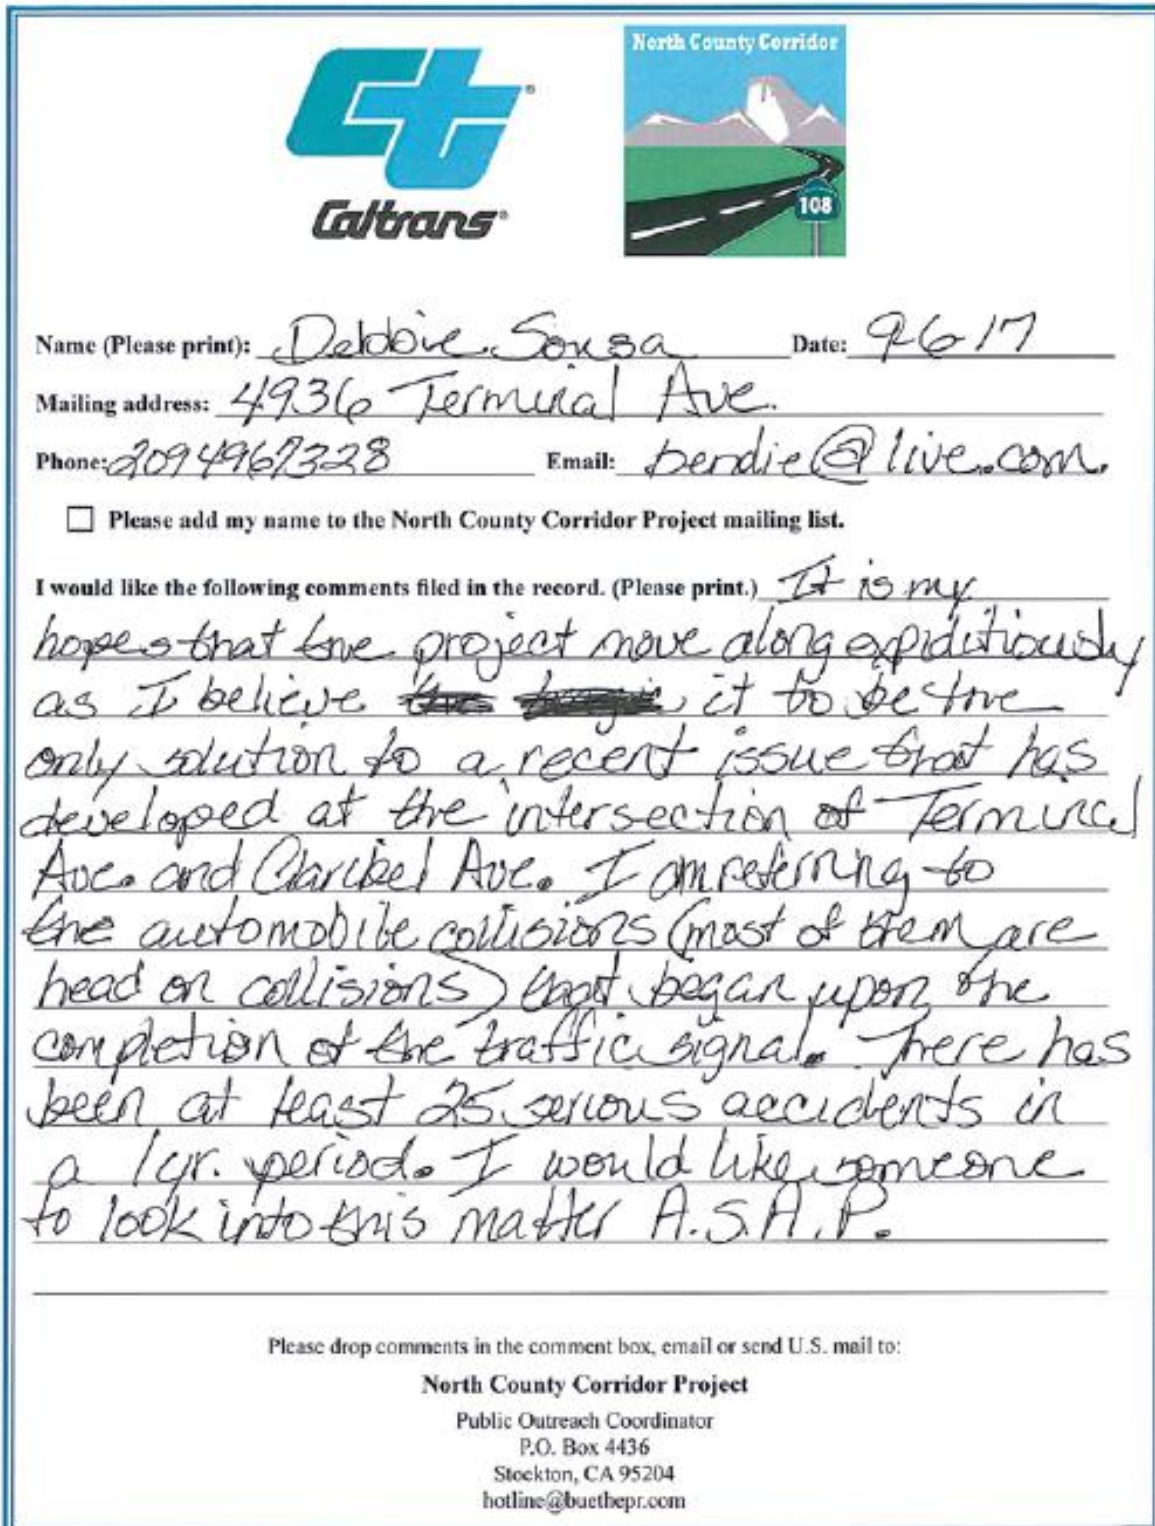 Caltrans®
North County Corridor
108
Name (Please print): Debbie Sousa Date: 9-6-17
Mailing address: 4936 Terminal Ave.
Phone: 2094967328 Email: bendie@live.com.
Please add my name to the North County Corridor Project mailing list.
I would like the following comments filed in the record. (Please print.) It is my
hopes that the project move along expiditiously
as I believe it to be the
only solution to a recent issue that has
developed at the intersection of Terminal
Ave. and Claribel Ave. I am referring to
the automobile collisions (most of them are
head on collisions) that began upon the
completion of the traffic signal. There has
been at least 25 serious accidents in
a 1yr. period. I would like someone
to look into this matter A.S.A.P.
Please drop comments in the comment box, email or send U.S. mail to:
North County Corridor Project
Public Outreach Coordinator
P.O. Box 4436
Stockton, CA 95204
hotline@buethepr.com